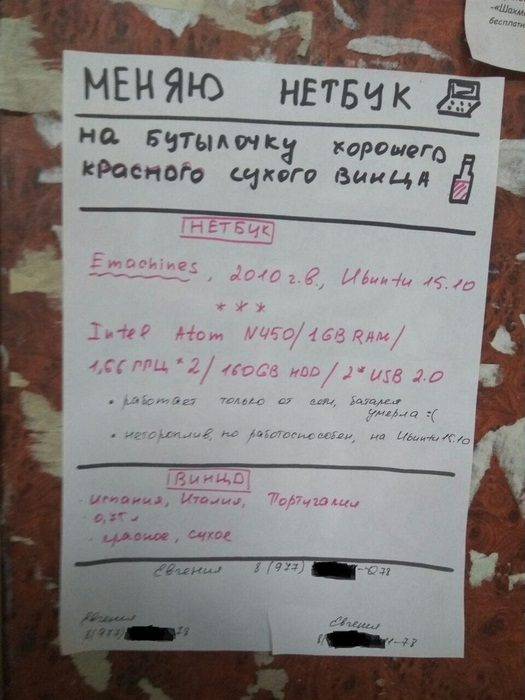 -«Шахм
бесплатн
МЕНЯЮ НЕТБУК
на бутылочку хорошего
красного сухого винца
НЕТБУК
Emachines, 2010 г.в., Ubuntu 15.10
* * *
Intel Atom N450/1GB RAM/
1,66 ГГЦ*2/160GB HDD/2*USB 2.0
• работает только от сети, батарея
умерла :(
• нетороплив, но работоспособен, на Ubuntu 15.10
ВИНЦО
· Испания, Италия, Португалия
· 0,75 л
· красное, сухое
Евгения 8 (977) -78
Евгения
8(977) 78
Евгения
8( -78